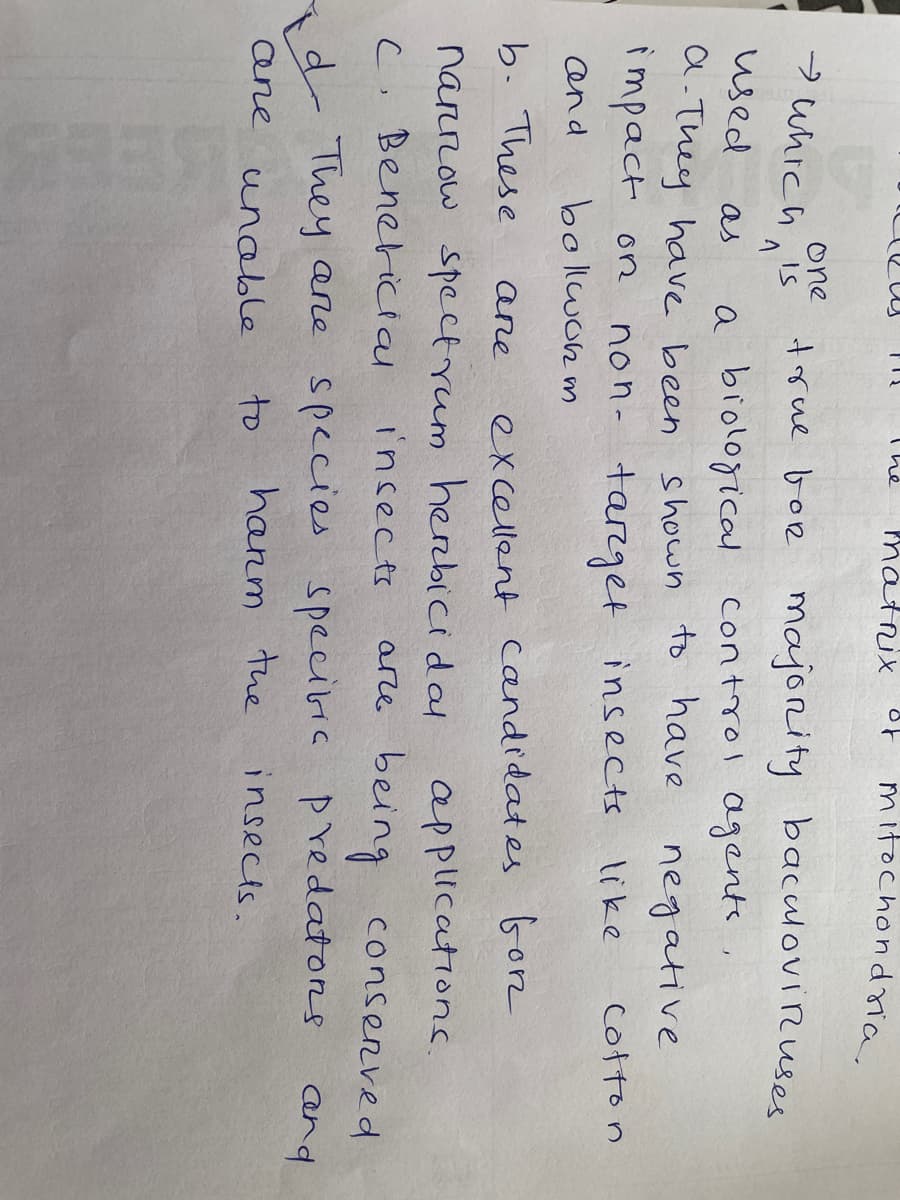 in the matrix of mitochondria.
→ which one is true for majority baculoviruses
used as a biological control agents.
a. They have been shown to have negative
impact on non-target insects like cotton
and bollworm
b. These are excellent candidates for
narrow spectrum herbicidal applications.
c. Beneficial insects are being conserved
d They are species specific predators and
are unable to harm the insects.